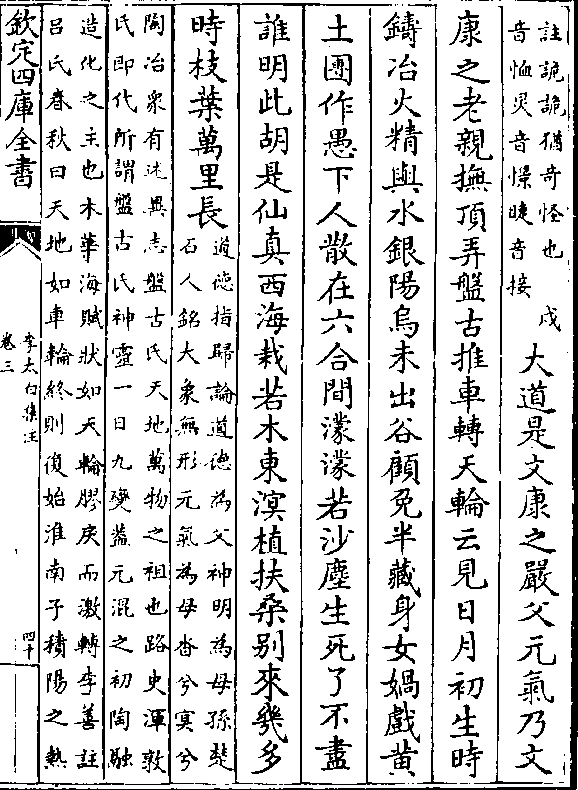 註詭詭猶奇怪也戌
音恤炅音憬睫音接
大道是文康之嚴父元氣乃文
康之老親撫頂弄盤古推車轉天輪云見日月初生時
鑄冶火精與水銀陽烏未出谷顧兔半藏身女媧戲黄
土團作愚下人散在六合間濛濛若沙塵生死了不盡
誰明此胡是仙真西海栽若木東溟植扶桑别來幾多
時枝葉萬里長
道德指歸論道德為父神明為母孫楚
石人銘大象無形元氣為母杳兮冥兮
陶冶衆有述異志盤古氏天地萬物之祖也路史渾敦
氏即代所謂盤古氏神靈一日九變蓋元混之初陶融
造化之主也木華海賦狀如天輪膠戾而激轉李善註
吕氏春秋曰天地如車輪終則復始淮南子積陽之熱
欽定四庫全書
李太白集注
卷三
四十